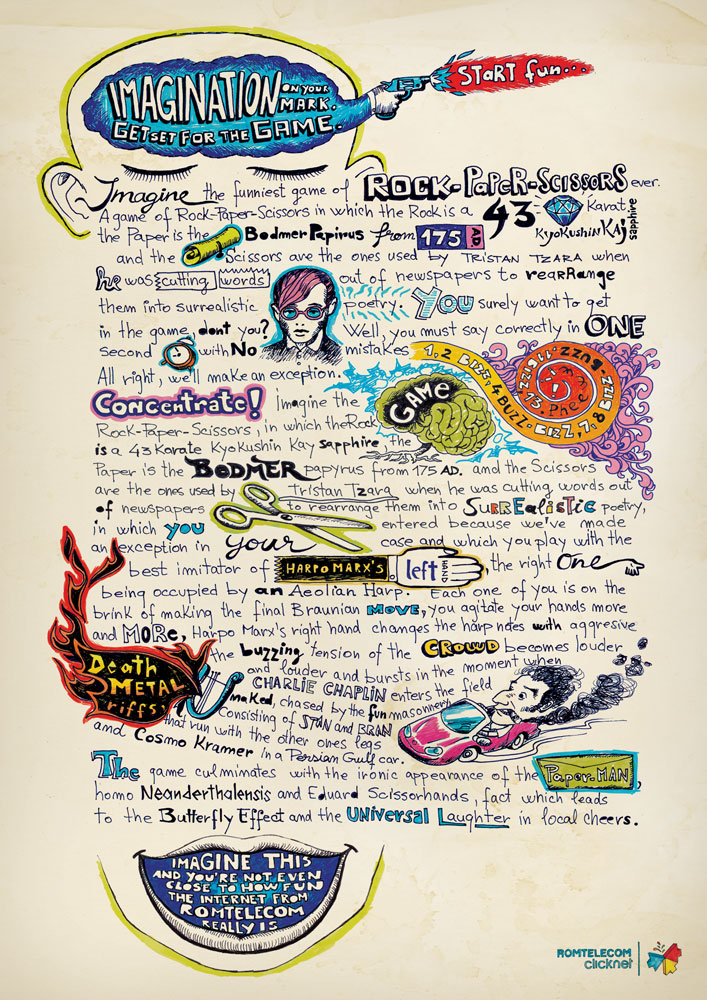 IMAGINATION ON YOUR MARK.
GET SET FOR THE GAME.
START fun...
Imagine the funniest game of ROCK-PAPER-SCISSORS ever.
A game of Rock-Paper-Scissors in which the Rock is a 43 Karat
KyoKushin Kaj sapphire
the Paper is the Bodmer Papirus from 175 AD
and the Scissors are the ones used by TRISTAN TZARA when
he was cutting words out of newspapers to rearRange
them into surrealistic poetry. YOU surely want to get
in the game, dont you? Well, you must say correctly in ONE
second with No mistakes 1, 2 BIZZ, 4 BUZZ, BIZZ, 7, 8 BIZZ
BUZZ, 11, BIZZ, 13. Phee
All right, we'll make an exception.
Concentrate! Imagine the GAME
Rock-Paper-Scissors, in which the Rock
is a 43 Karate KyoKushin Kay sapphire, the
Paper is the BODMER papyrus from 175 AD. and the Scissors
are the ones used by Tristan Tzara when he was cutting words out
of newspapers to rearrange them into SURREalistic poetry,
in which you entered because we've made
an exception in your case and which you play with the
best imitator of HARPO MARX'S left HAND, the right One
being occupied by an Aeolian Harp. Each one of you is on the
brink of making the final Braunian MOVE, you agitate your hands more
and MORe, Harpo Marx's right hand changes the harp notes with aggresive
Death METAL riffs
the buzzing tension of the CROWD becomes louder
and louder and bursts in the moment when
CHARLIE CHAPLIN enters the field
naked, chased by the fun masonnery
consisting of STAN and BRAN
that run with the other ones legs
and Cosmo Kramer in a Persian Gulf car.
The game culminates with the ironic appearance of the Paper-MAN,
homo Neanderthalensis and Eduard Scissorhands, fact which leads
to the Butterfly Effect and the UNIVERSAL Laughter in local cheers.
IMAGINE THIS
AND YOU'RE NOT EVEN
CLOSE TO HOW FUN
THE INTERNET FROM
ROMTELECOM
REALLY IS
ROMTELECOM
clicknet